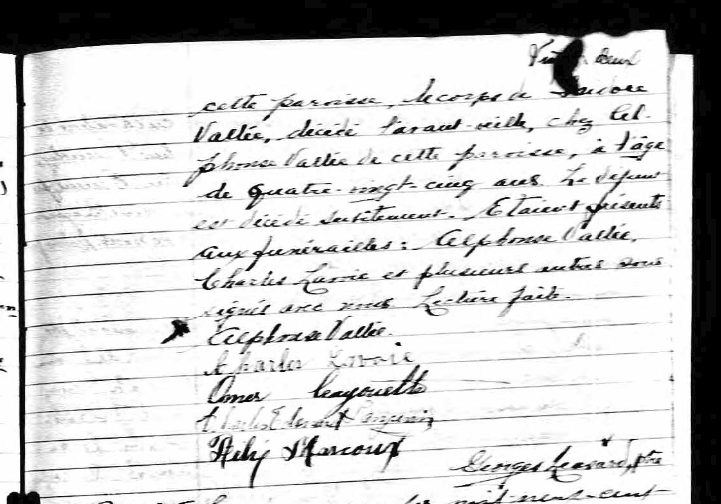 deux
cette paroisse, le corps de Isidore
Vallée, décédé l'avant-veille, chez Al-
phonse Vallée de cette paroisse, à l'âge
de quatre-vingt-cinq ans. Le défunt
est décédé subitement. Etaient présents
aux funérailles: Alphonse Vallée,
Charles Lavoie et plusieurs autres sous
signés avec nous Lecture faite.
Alphonse Vallée.
Charles Lavoie
Omer Cayouette
Marcoux
Georges ptre